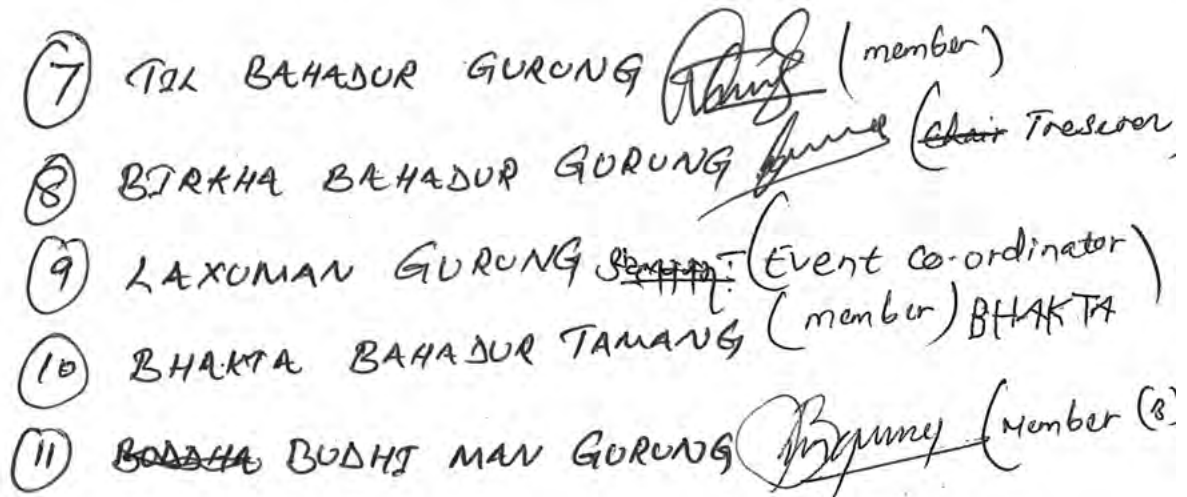 7 TIL BAHADUR GURUNG (member)
8 BIRKHA BAHADUR GURUNG (Chair Treserer
9 LAXUMAN GURUNG (Event co-ordinator)
10 BHAKTA BAHADUR TAMANG (member) BHAKTA
11 BUDDHA BUDHI MAN GURUNG (Member (B)